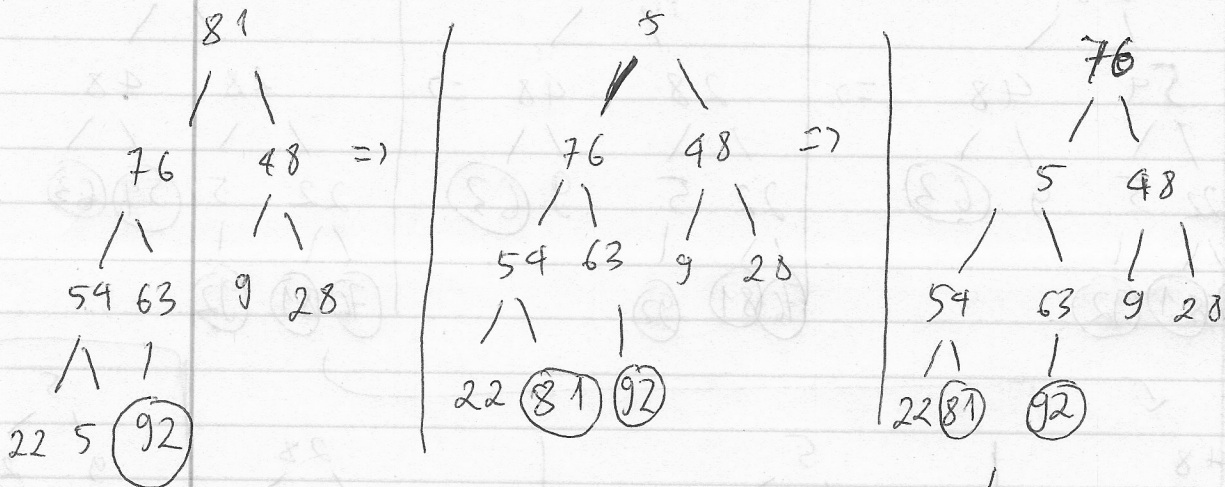 81
76 48 =>
54 63 9 28
22 5 92
5
76 48 =>
54 63 9 28
22 81 92
76
5 48
54 63 9 28
22 81 92